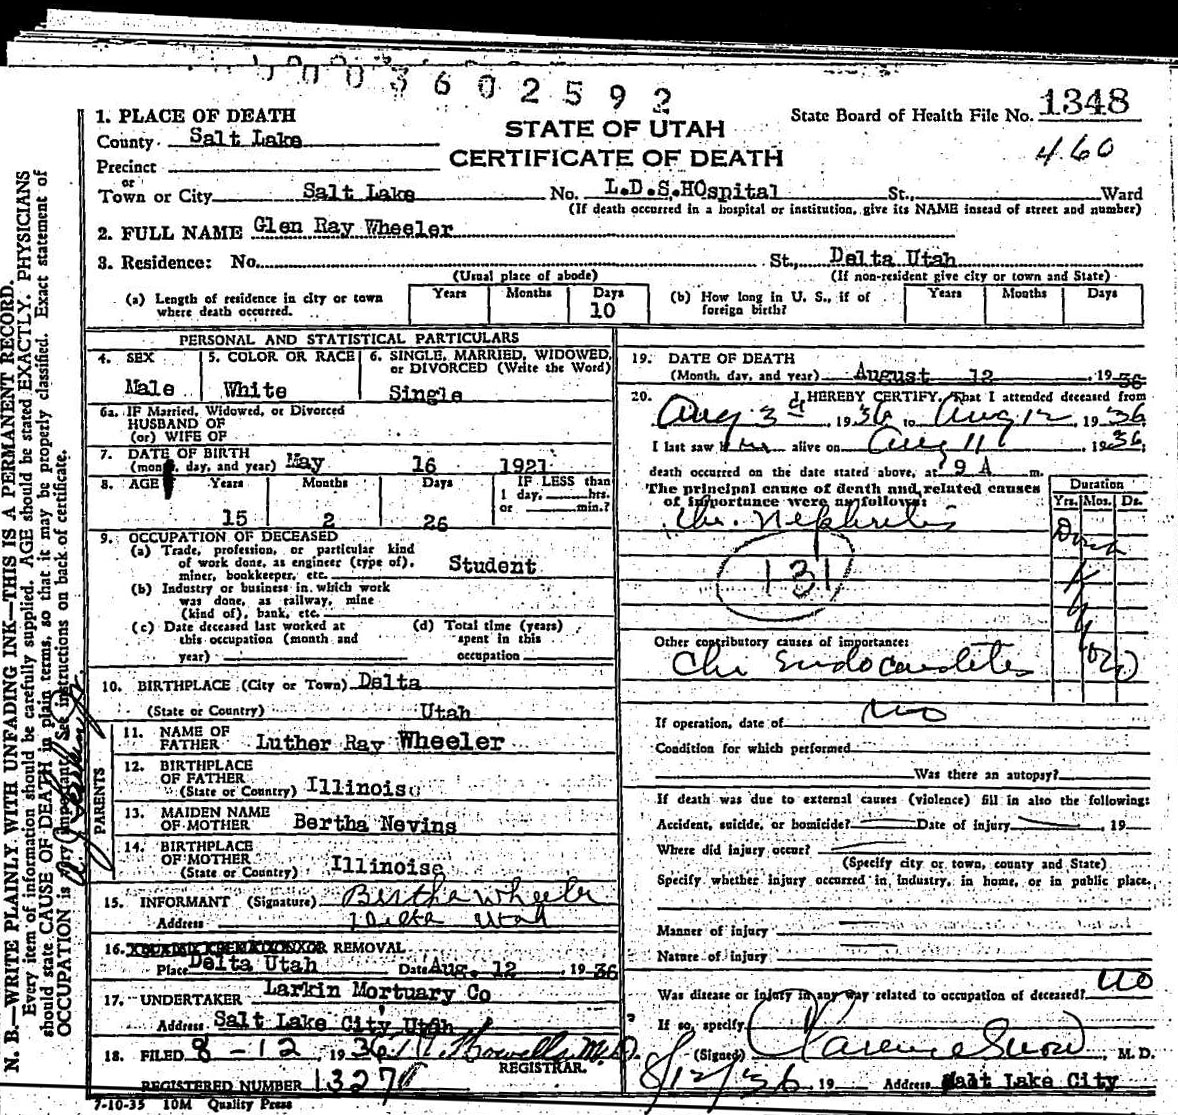 0003602592
1. PLACE OF DEATH
County Salt Lake
STATE OF UTAH
CERTIFICATE OF DEATH
State Board of Health File No. 1348
460
Precinct
or
Town or City Salt Lake No. L.D.S.HOspital St., Ward
(If death occurred in a hospital or institution, give its NAME insead of street and number)
2. FULL NAME Glen Ray Wheeler
3. Residence: No. St., Delta Utah
(Usual place of abode) (If non-resident give city or town and State)
(a) Length of residence in city or town where death occurred. Years Months Days 10
(b) How long in U. S., if of foreign birth? Years Months Days
PERSONAL AND STATISTICAL PARTICULARS
4. SEX Male
5. COLOR OR RACE White
6. SINGLE, MARRIED, WIDOWED, or DIVORCED (Write the Word) Single
6a. IF Married, Widowed, or Divorced
HUSBAND OF
(or) WIFE OF
7. DATE OF BIRTH
(month, day, and year) May 16 1921
8. AGE Years Months Days IF LESS than
1 day, hrs.
or min.?
15 2 26
9. OCCUPATION OF DECEASED
(a) Trade, profession, or particular kind
of work done, as engineer (type of),
miner, bookkeeper, etc. Student
(b) Industry or business in which work
was done, as railway, mine
(kind of), bank, etc.
(c) Date deceased last worked at
this occupation (month and
year)
(d) Total time (years)
spent in this
occupation
10. BIRTHPLACE (City or Town) Delta
(State or Country) Utah
PARENTS
11. NAME OF
FATHER Luther Ray Wheeler
12. BIRTHPLACE
OF FATHER
(State or Country) Illinois
13. MAIDEN NAME
OF MOTHER Bertha Nevins
14. BIRTHPLACE
OF MOTHER
(State or Country) Illinois
15. INFORMANT (Signature) Bertha Wheeler
Address Delta Utah
16. BURIAL, CREMATION, OR REMOVAL
Place Delta Utah Date Aug. 12, 1936
17. UNDERTAKER Larkin Mortuary Co
Address Salt Lake City Utah
18. FILED 8-12, 1936 M.D.
REGISTRAR.
REGISTERED NUMBER 1327
7-10-35 10M Quality Press
19. DATE OF DEATH
(Month, day, and year) August 12, 1936
20. I HEREBY CERTIFY, That I attended deceased from
Aug 3rd, 1936 to Aug 12, 1936
I last saw him alive on Aug 11, 1936,
death occurred on the date stated above, at 9 A m.
The principal cause of death and related causes
of importance were as follows:
Duration
Yrs. Mos. Ds.
Chr. Nephritis
131
Other contributory causes of importance:
Chr Endocarditis
If operation, date of no
Condition for which performed
Was there an autopsy?
If death was due to external causes (violence) fill in also the following:
Accident, suicide, or homicide? Date of injury, 19
Where did injury occur?
(Specify city or town, county and State)
Specify whether injury occurred in industry, in home, or in public place.
Manner of injury
Nature of injury
Was disease or injury in any way related to occupation of deceased? no
If so, specify
(Signed) Clarence Snow, M. D.
8/12/36, 19 Address Salt Lake City
N. B.—WRITE PLAINLY, WITH UNFADING INK—THIS IS A PERMANENT RECORD.
Every item of information should be carefully supplied. AGE should be stated EXACTLY. PHYSICIANS
should state CAUSE OF DEATH in plain terms, so that it may be properly classified. Exact statement of
OCCUPATION is very important. See instructions on back of certificate.